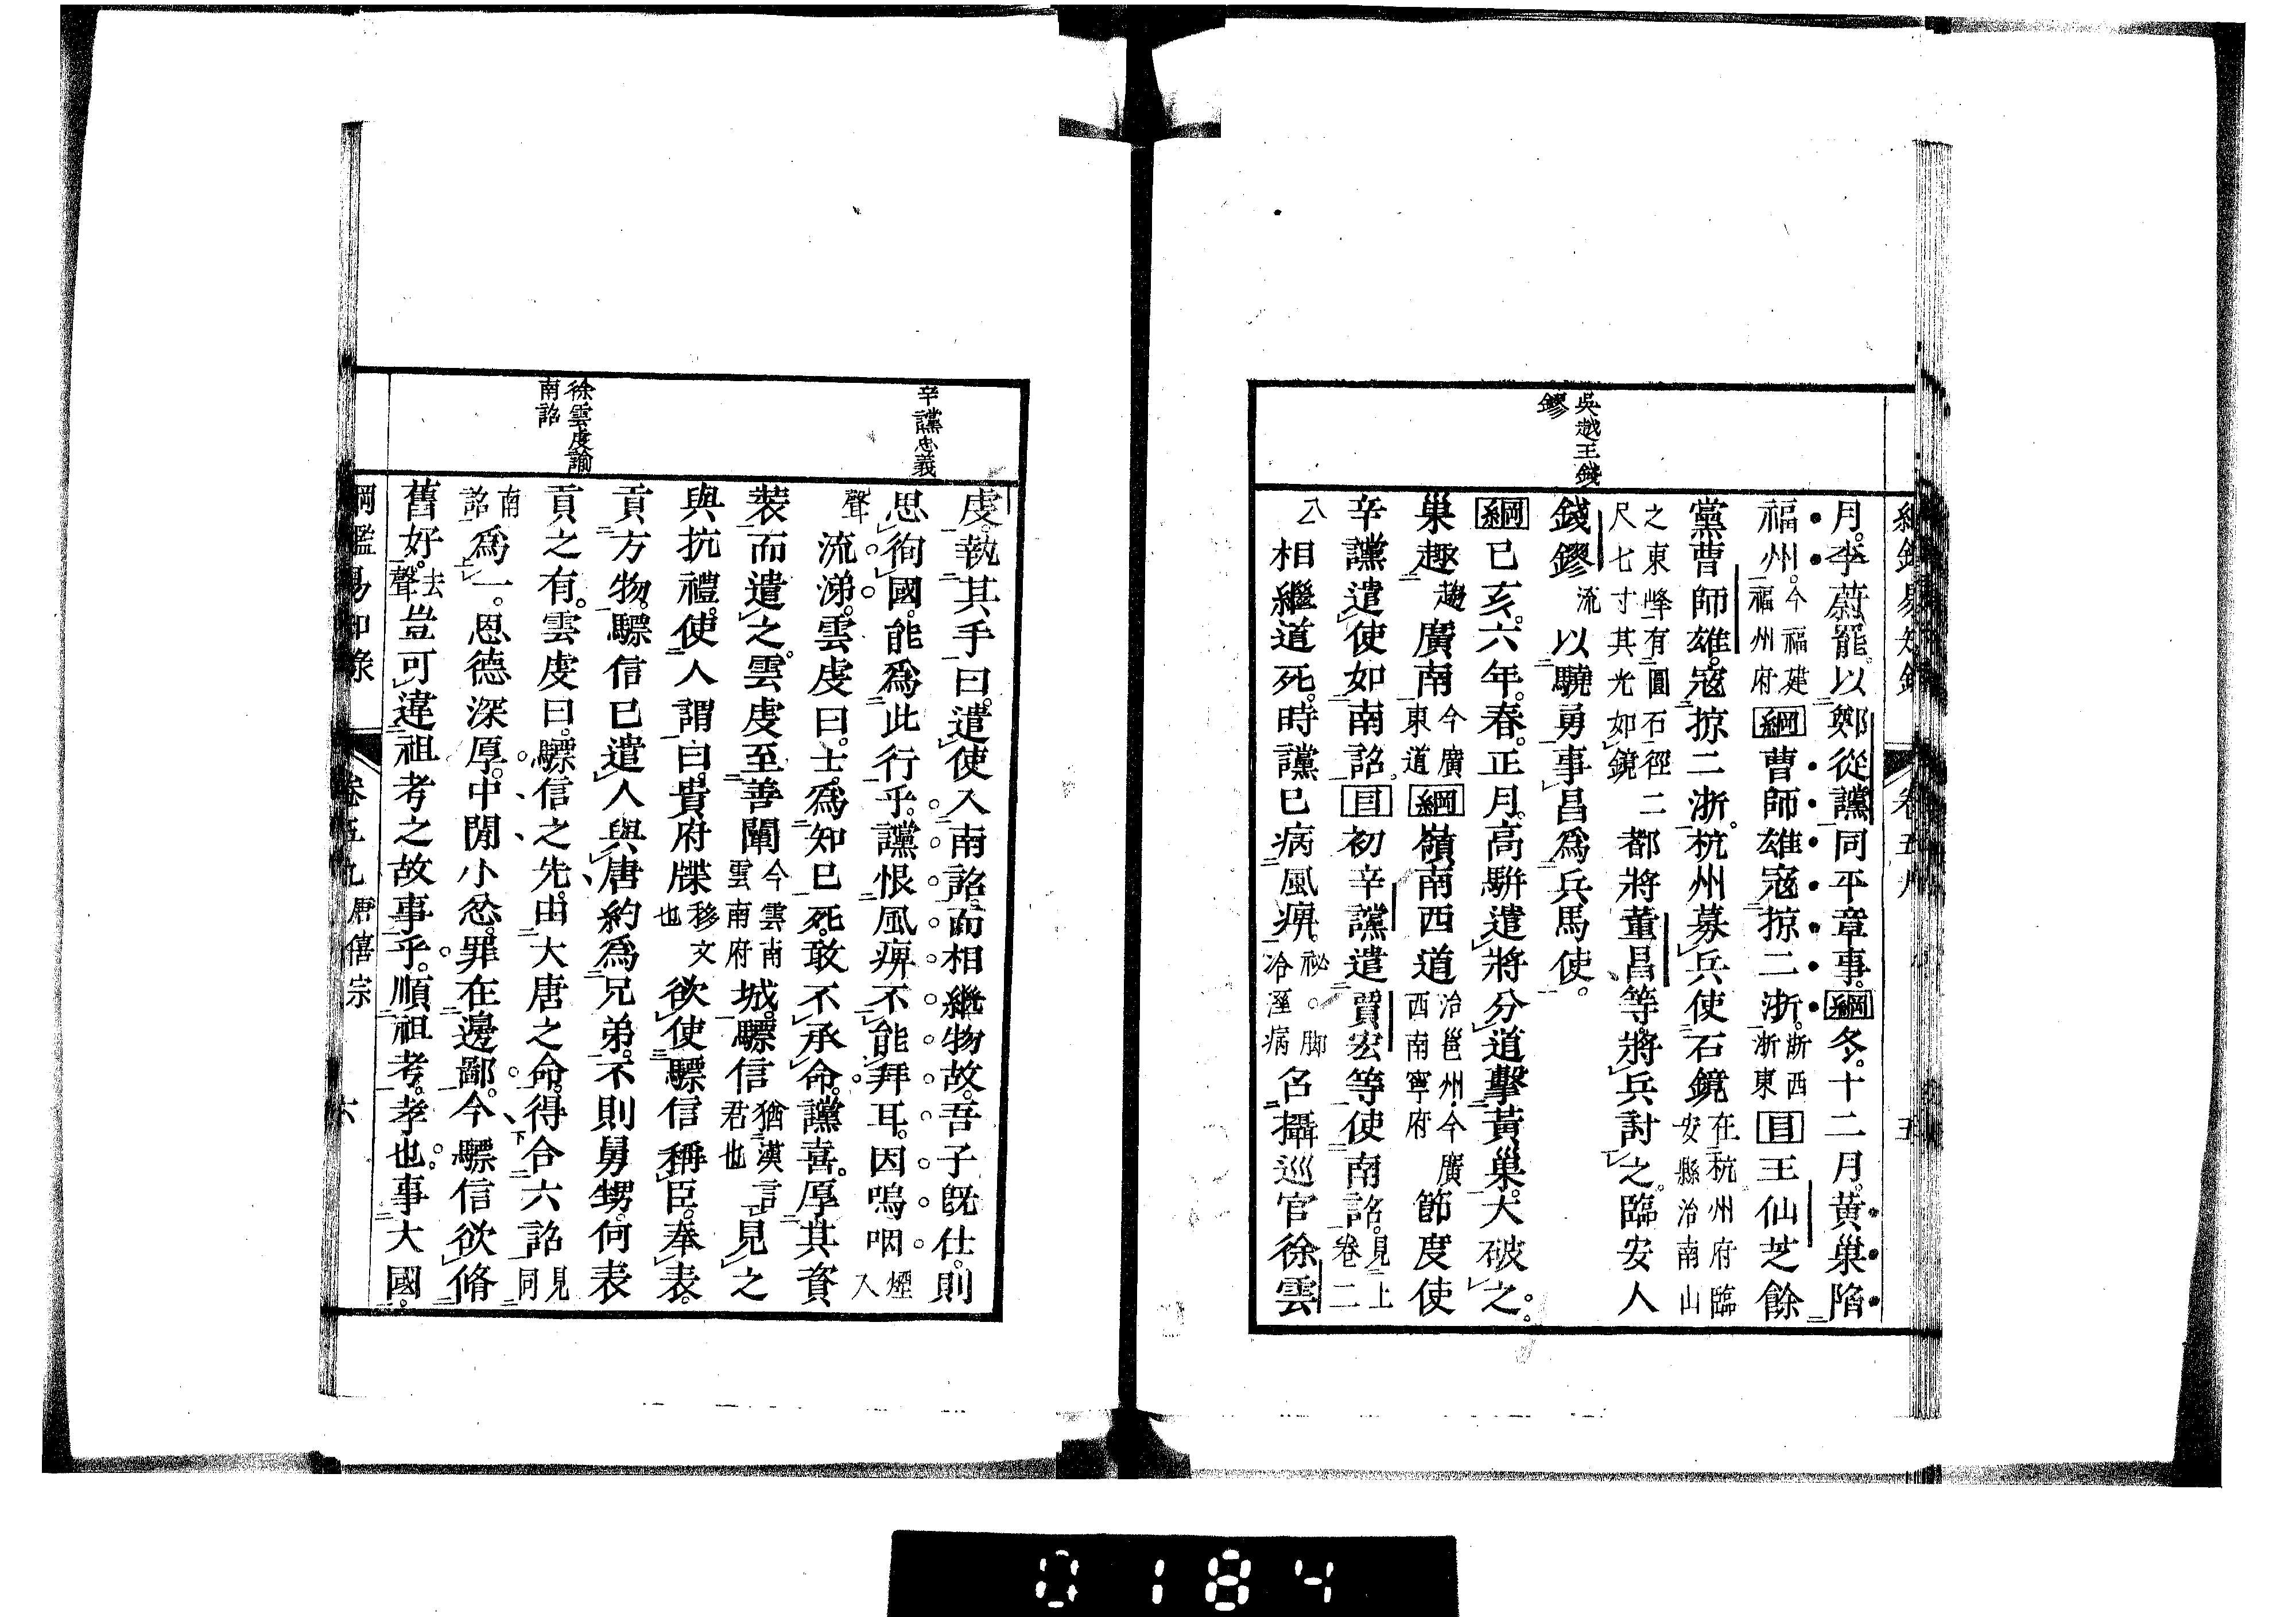 吳越王錢
鏐
月。李蔚罷。以鄭從讜同平章事。綱冬。十二月。黃巢陷
福州。今福建福州府綱曹師雄寇掠二浙。浙西浙東目王仙芝餘
黨曹師雄。寇掠二浙。杭州募兵使石鏡在杭州府臨安縣治南山
之東峰有圓石徑二尺七寸其光如鏡都將董昌等。將兵討之。臨安人
錢鏐流以驍勇事昌爲兵馬使。
綱己亥。六年。春。正月。高駢遣將分道擊黃巢。大破之。
巢趣趨廣南今廣東道綱嶺南西道治邕州今廣西南寧府節度使
辛讜遣使如南詔。目初辛讜遣賈宏等使南詔。見上卷二
八相繼道死。時讜已病風痹。祕。脚冷溼病召攝巡官徐雲
辛讜忠義
徐雲虔諭
南詔
虔。執其手曰。遣使入南詔。而相繼物故。吾子既仕。則
思徇國。能爲此行乎。讜恨風痹不能拜耳。因嗚咽煙入
聲流涕。雲虔曰。士爲知已死。敢不承命。讜喜。厚其資
裝而遣之。雲虔至善闡今雲南雲南府城。驃信猶漢言君也見之
與抗禮。使人謂曰。貴府牒移文也欲使驃信稱臣。奉表。
貢方物。驃信已遣人與唐約爲兄弟。不則舅甥。何表
貢之有。雲虔曰。驃信之先。由大唐之命。得合六詔見同
南詔爲一。恩德深厚。中間小忿。罪在邊鄙。今驃信欲脩
舊好。去聲豈可違祖考之故事乎。順祖考。孝也。事大國。
綱鑑易知錄 卷五九 唐僖宗 六